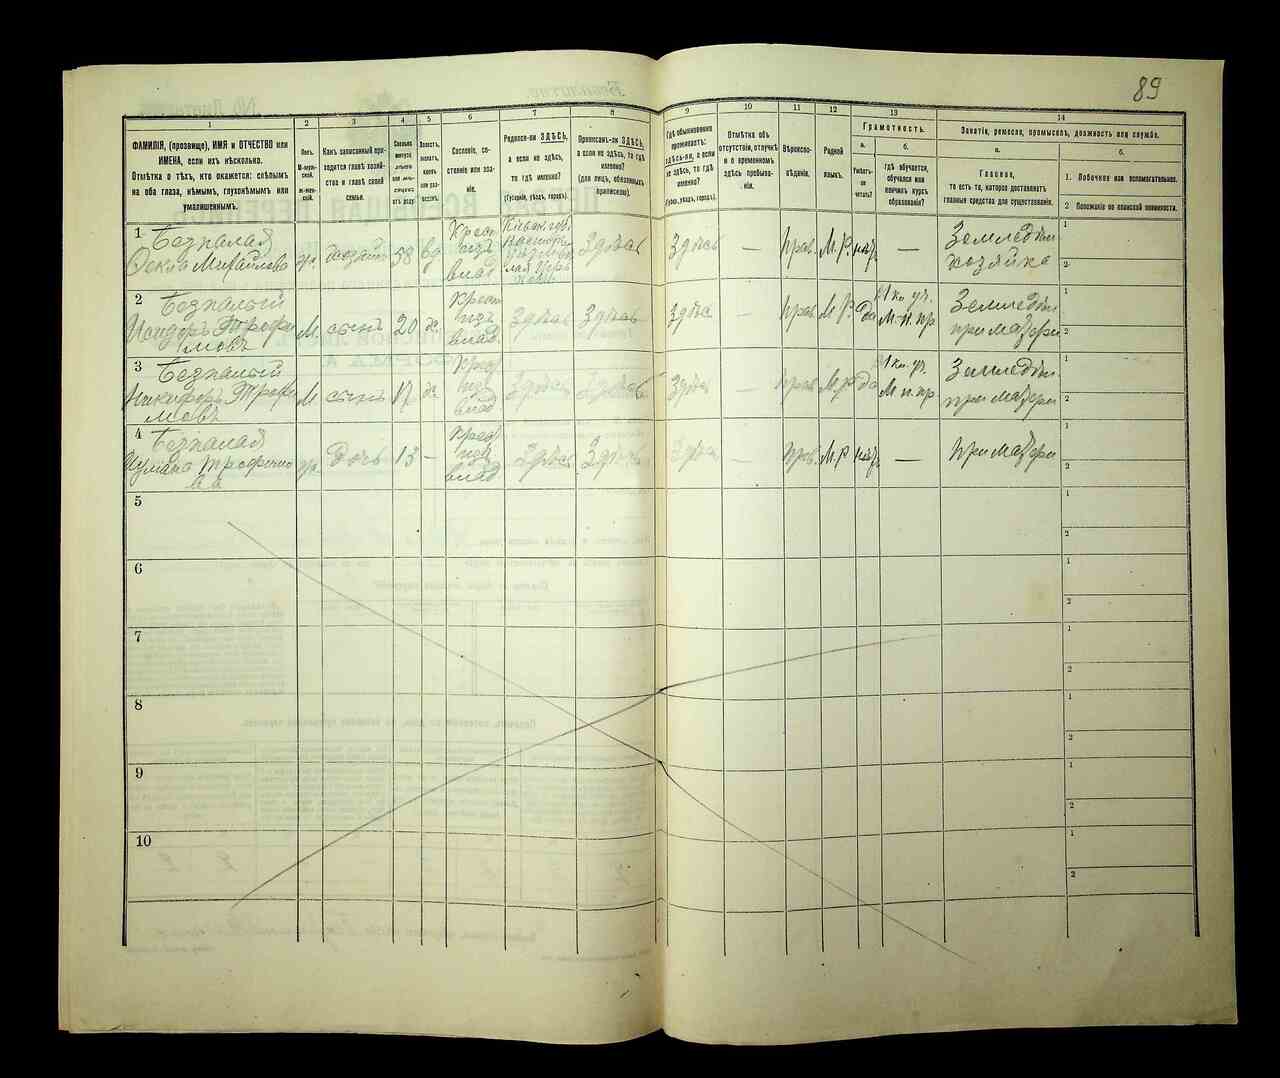 89
1
2
3
4
5
6
7
8
9
10
11
12
13
14
ФАМИЛІЯ, (прозвище), ИМЯ и ОТЧЕСТВО или
ИМЕНА, если ихъ нѣсколько.
Отмѣтка о тѣхъ, кто окажется: слѣпымъ
на оба глаза, нѣмымъ, глухонѣмымъ или
умалишеннымъ.
Полъ.
М-муж-
ской.
Ж-жен-
скій.
Какъ записанный при-
ходится главѣ хозяй-
ства и главѣ своей
семьи.
Сколько
минуло
лѣтъ
или мѣ-
сяцевъ
отъ роду.
Холостъ,
женатъ,
вдовъ
или раз-
веденъ.
Сословіе, со-
стояніе или зва-
ніе.
Родился-ли ЗДѢСЬ,
а если не здѣсь,
то гдѣ именно?
(Губернія, уѣздъ, городъ).
Приписанъ-ли ЗДѢСЬ,
а если не здѣсь, то гдѣ
именно?
(для лицъ, обязанныхъ
припискою).
Гдѣ обыкновенно
проживаетъ:
здѣсь-ли, а если
не здѣсь, то гдѣ
именно?
(Губерн., уѣздъ, городъ).
Отмѣтка объ
отсутствіи, отлучкѣ
и о временномъ
здѣсь пребыва-
ніи.
Вѣроиспо-
вѣданіе.
Родной
языкъ.
Грамотность.
а.
Умѣетъ-
ли
читать?
б.
гдѣ обучается,
обучался или
кончилъ курсъ
образованія?
Занятіе, ремесло, промыселъ, должность или служба.
а.
Главное,
то есть то, которое доставляетъ
главныя средства для существованія.
б.
1. Побочное или вспомогательное.
2 Положеніе по воинской повинности.
1 Безпалая
Ѳекла Михайлова
ж.
58
вд
Крест
изъ
влад.
Здѣсь
Здѣсь
—
прав.
М.Р.
—
Земледѣл
хозяйка
1
2
2 Безпалый
Исидоръ Трофи
мовъ
М
сынъ
20
х.
Крест
изъ
влад.
Здѣсь
Здѣсь
Здѣсь
—
прав
М.Р.
да
М.н.пр
Земледѣл
при матери
1
2
3 Безпалый
Никифоръ Трофи
мовъ
М
сынъ
17
х.
Крест
изъ
влад.
Здѣсь
Здѣсь
Здѣсь
—
прав
М.р
да
М.н.пр
Земледѣл
при матери
1
2
4 Безпалая
Трофимо
ва
ж.
дочь
13
—
Крест
изъ
влад.
Здѣсь
Здѣсь
Здѣсь
—
прав.
М.Р
—
при матери
1
2
5
1
2
6
1
2
7
1
2
8
1
2
9
1
2
10
1
2